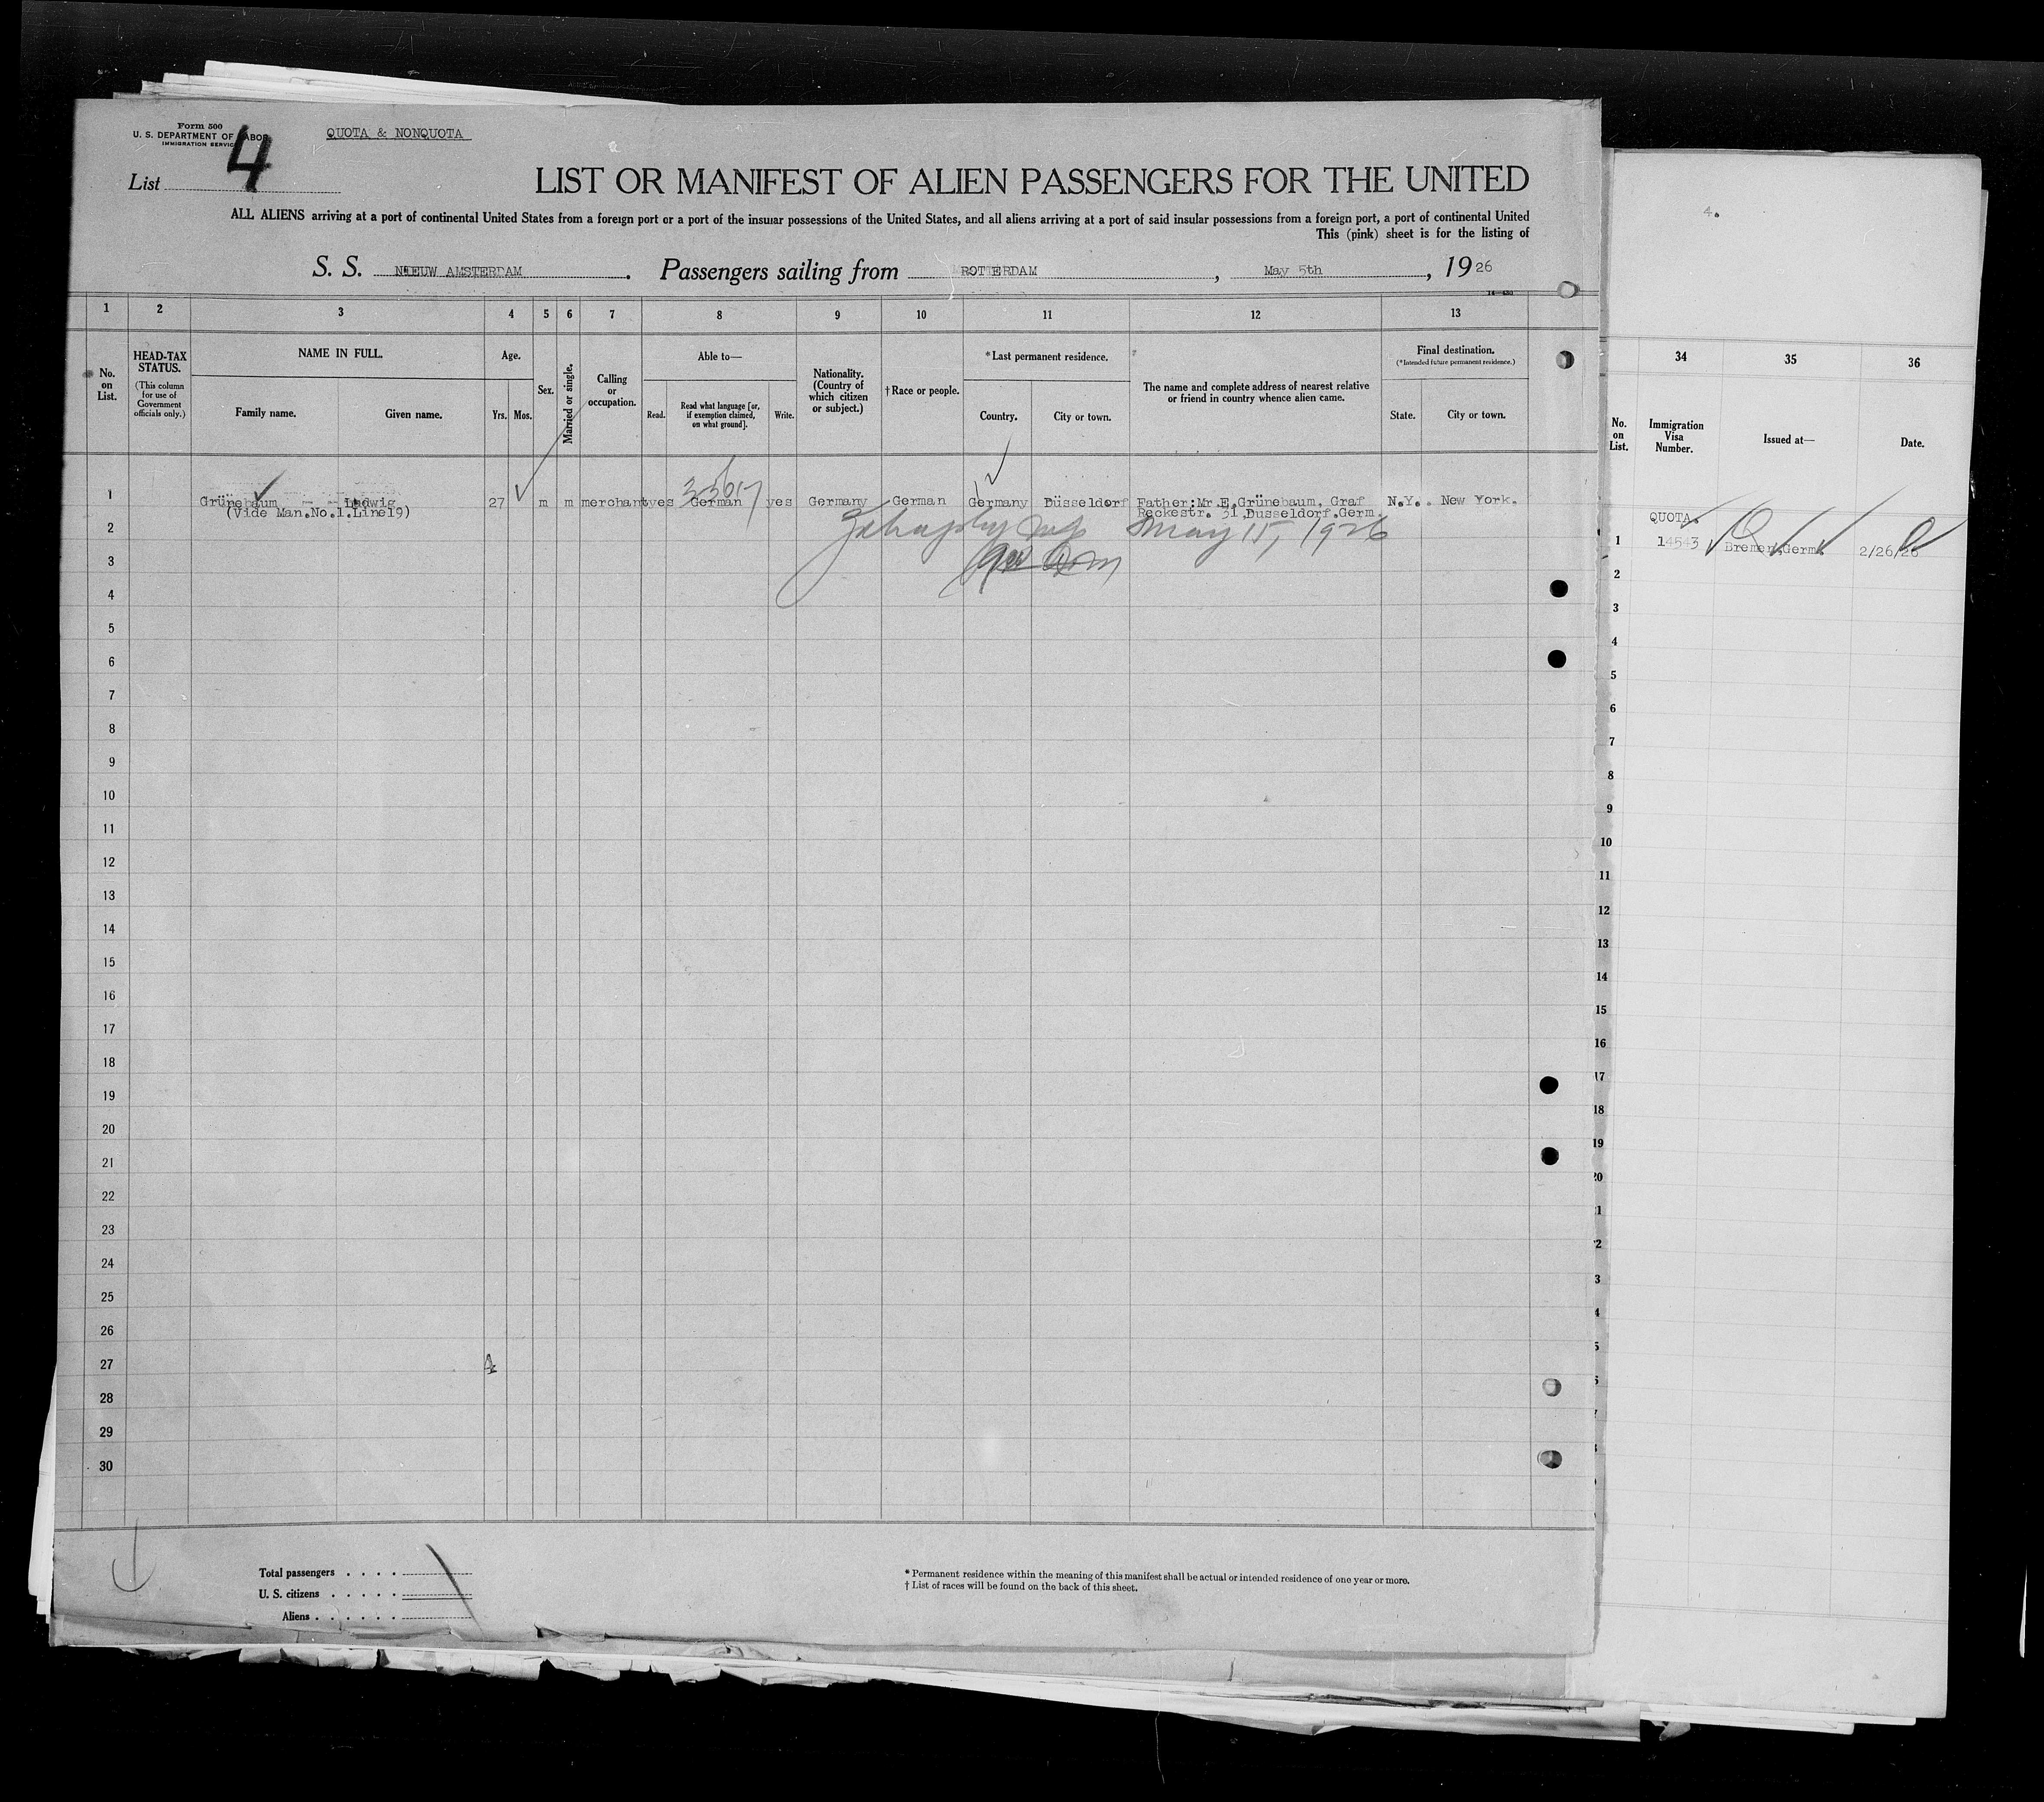 Form 500
U. S. DEPARTMENT OF LABOR
IMMIGRATION SERVICE
4
QUOTA & NONQUOTA
List
LIST OR MANIFEST OF ALIEN PASSENGERS FOR THE UNITED
ALL ALIENS arriving at a port of continental United States from a foreign port or a port of the insular possessions of the United States, and all aliens arriving at a port of said insular possessions from a foreign port, a port of continental United
This (pink) sheet is for the listing of
S. S. NIEUW AMSTERDAM. Passengers sailing from ROTTERDAM, May 5th, 1926
1 2 3 4 5 6 7 8 9 10 11 12 13
No. on List.
HEAD-TAX STATUS.
(This column for use of Government officials only.)
NAME IN FULL.
Family name. Given name.
Age.
Yrs. Mos.
Sex.
Married or single.
Calling or occupation.
Able to—
Read. Read what language [or, if exemption claimed, on what ground]. Write.
Nationality. (Country of which citizen or subject.)
† Race or people.
*Last permanent residence.
Country. City or town.
The name and complete address of nearest relative or friend in country whence alien came.
Final destination.
(*Intended future permanent residence.)
State. City or town.
1 Grünebaum Ludwig 27 m m merchant yes German yes Germany German Germany Düsseldorf Father:Mr.E.Grünebaum, Graf N.Y. New York.
(Vide Man.No.1.Line19) Reckestr. 31,Dusseldorf.Germ.
May 15, 1926
2
3
4
5
6
7
8
9
10
11
12
13
14
15
16
17
18
19
20
21
22
23
24
25
26
27
28
29
30
4
Total passengers
U. S. citizens
Aliens
* Permanent residence within the meaning of this manifest shall be actual or intended residence of one year or more.
† List of races will be found on the back of this sheet.
4.
34 35 36
No. on List.
Immigration Visa Number.
Issued at—
Date.
QUOTA.
1 14543 Bremen,Germ. 2/26/26
2
3
4
5
6
7
8
9
10
11
12
13
14
15
16
17
18
19
20